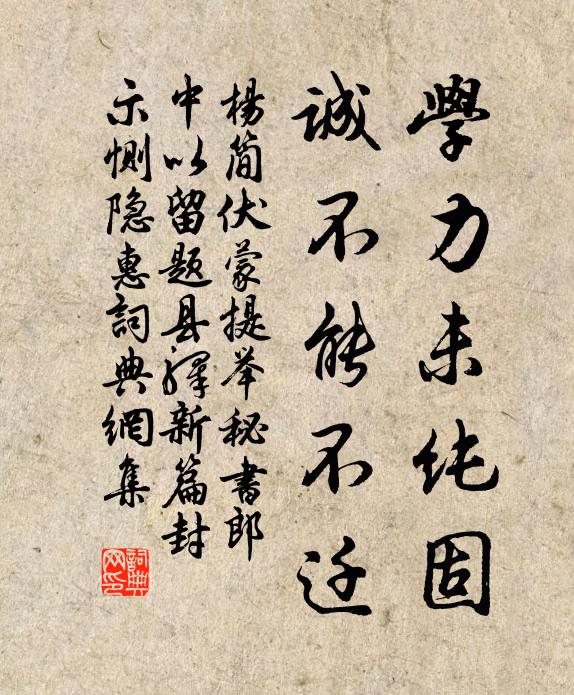 學力未纯固
誠不能不迁
楊简伏蒙提举秘書郎
中以留题县驿新篇封
示恻隐惠詞典網集
詞典
网印